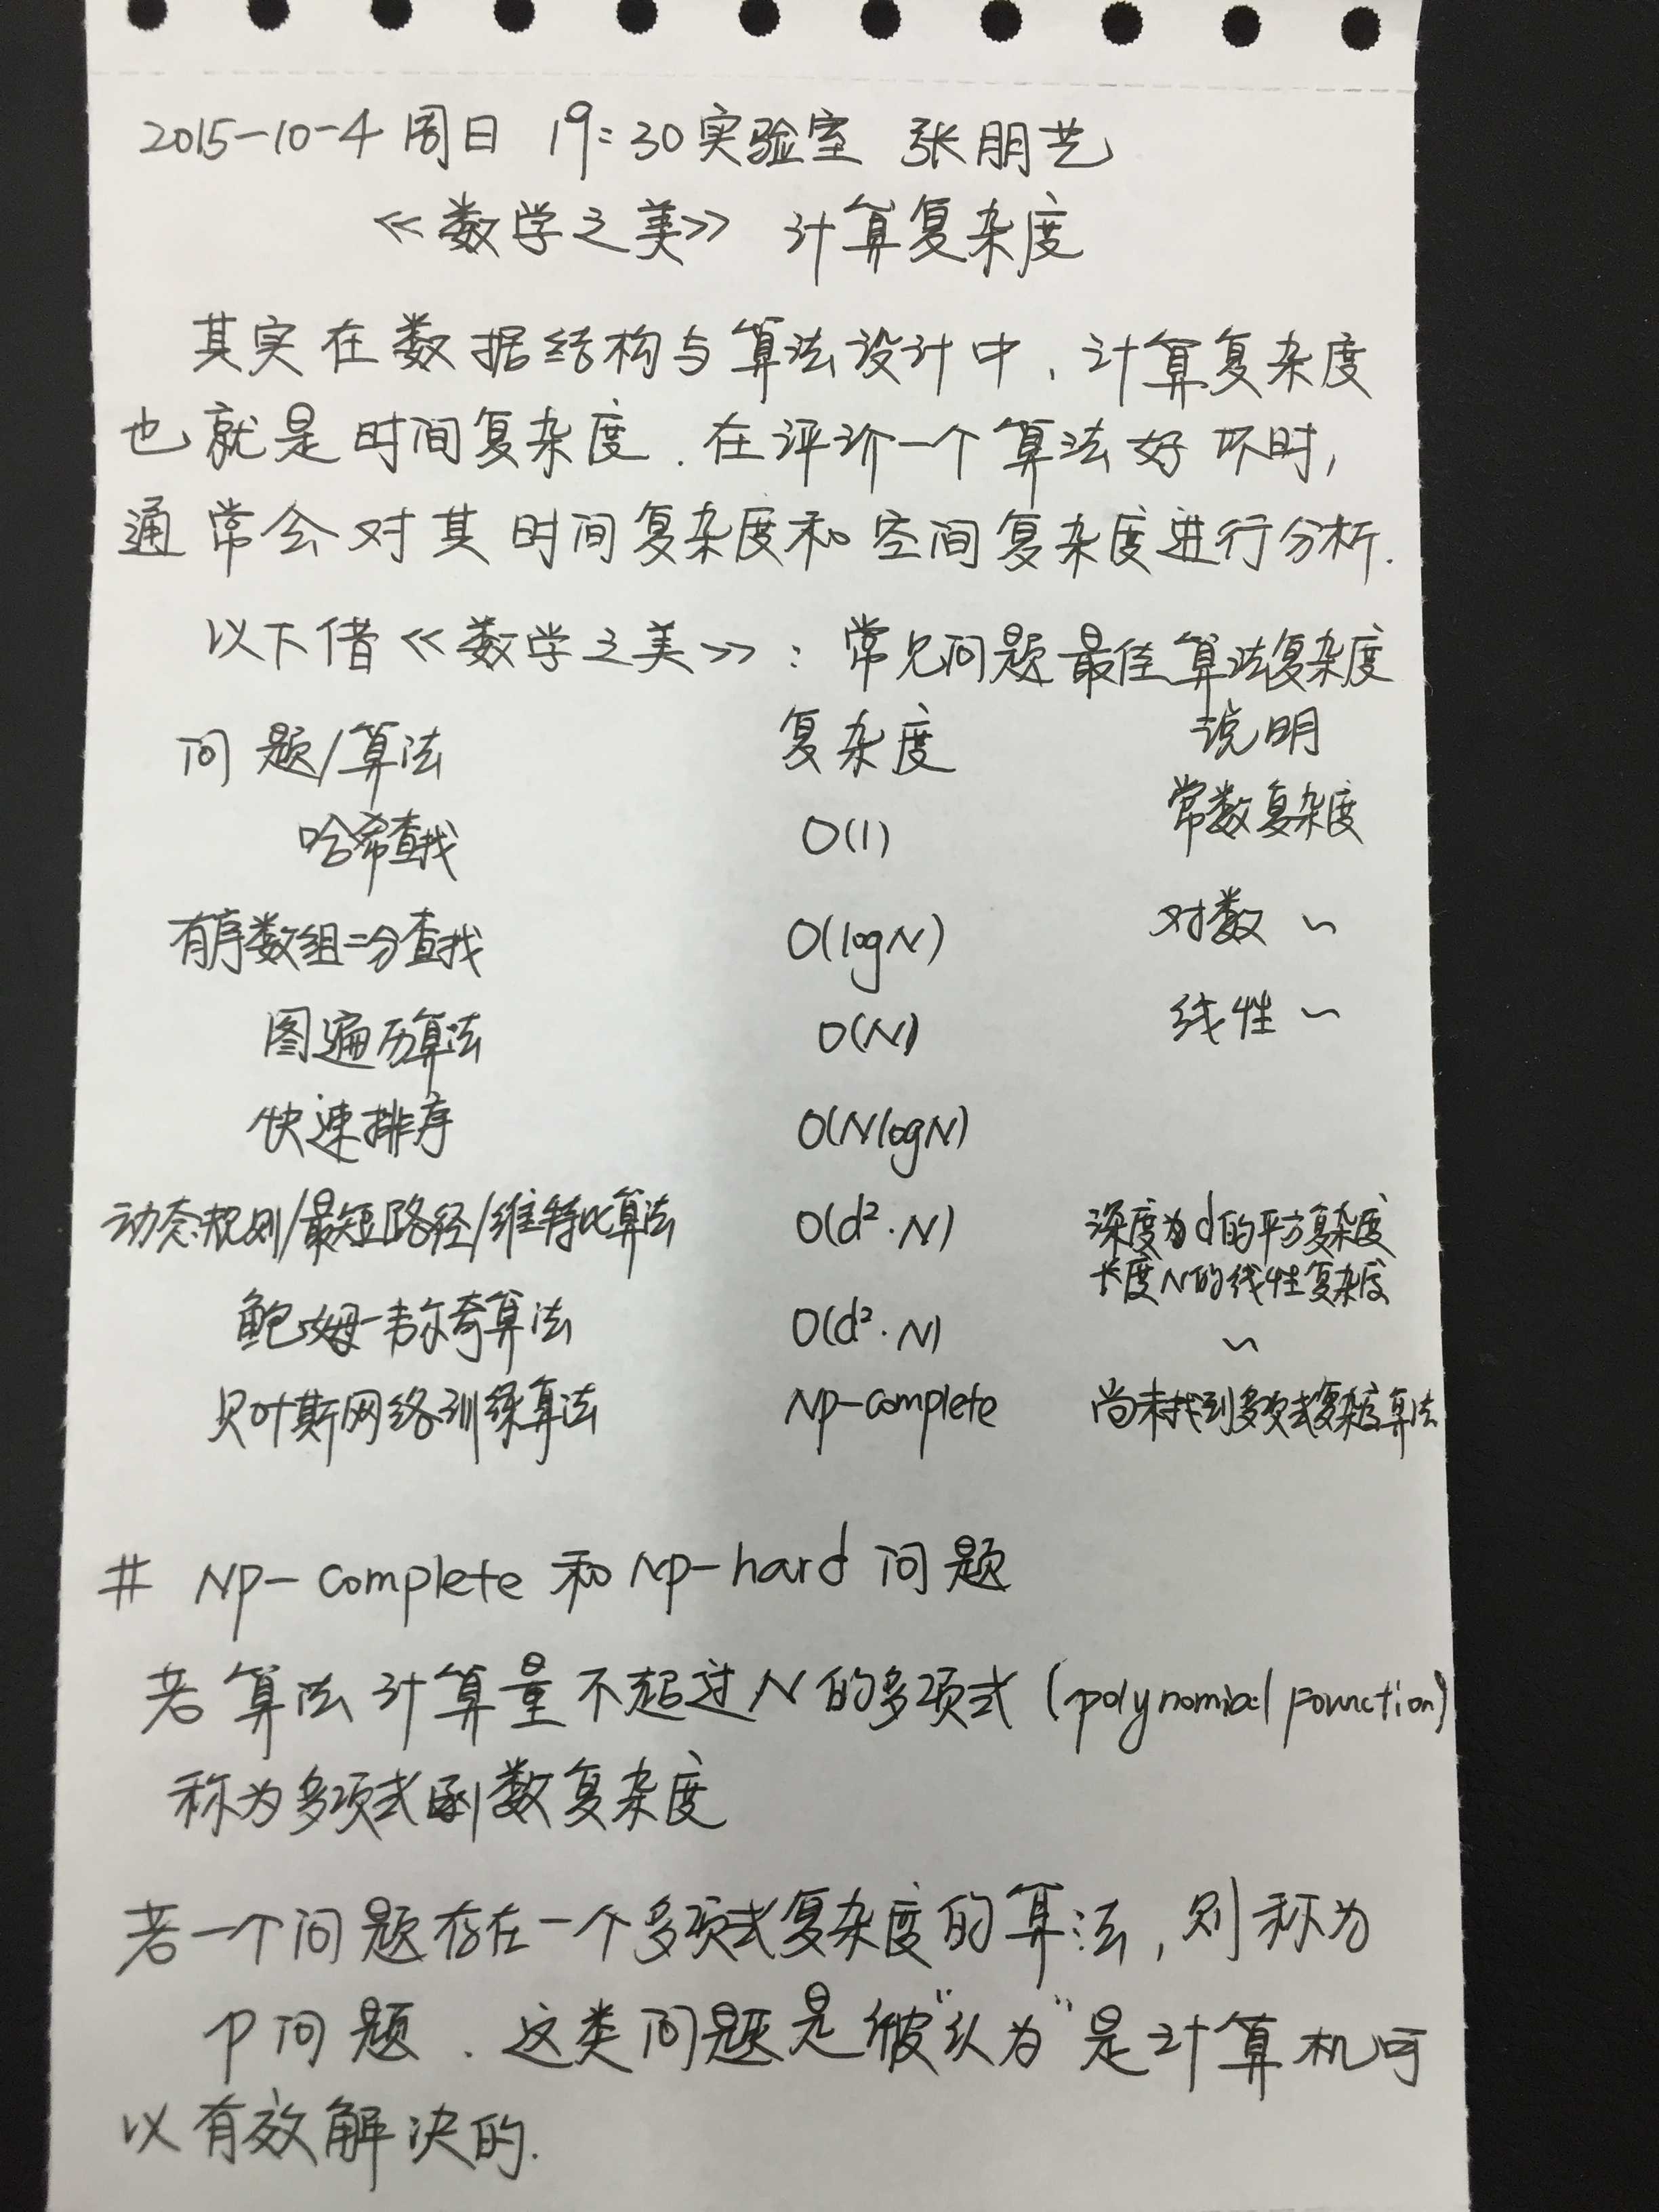 2015-10-4 周日 19:30 实验室 张朋艺
《数学之美》 计算复杂度
其实在数据结构与算法设计中，计算复杂度
也就是时间复杂度．在评价一个算法好坏时，
通常会对其时间复杂度和空间复杂度进行分析．
以下借《数学之美》：常见问题最佳算法复杂度
问题/算法 复杂度 说明
哈希查找 O(1) 常数复杂度
有序数组二分查找 O(logN) 对数 ~
图遍历算法 O(N) 线性 ~
快速排序 O(NlogN)
动态规则/最短路径/维特比算法 O(d²·N) 深度为d的平方复杂度
长度N的线性复杂度
鲍姆-韦尔奇算法 O(d²·N) ~
贝叶斯网络训练算法 Np-complete 尚未找到多项式复杂度算法
# Np-complete 和 Np-hard 问题
若算法计算量不超过N的多项式 (polynomial function)
称为多项式函数复杂度
若一个问题存在一个多项式复杂度的算法，则称为
P问题．这类问题是被“认为”是计算机可
以有效解决的．